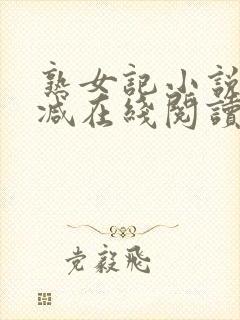 熟女記小說
減在綫閱讀
党毅飛